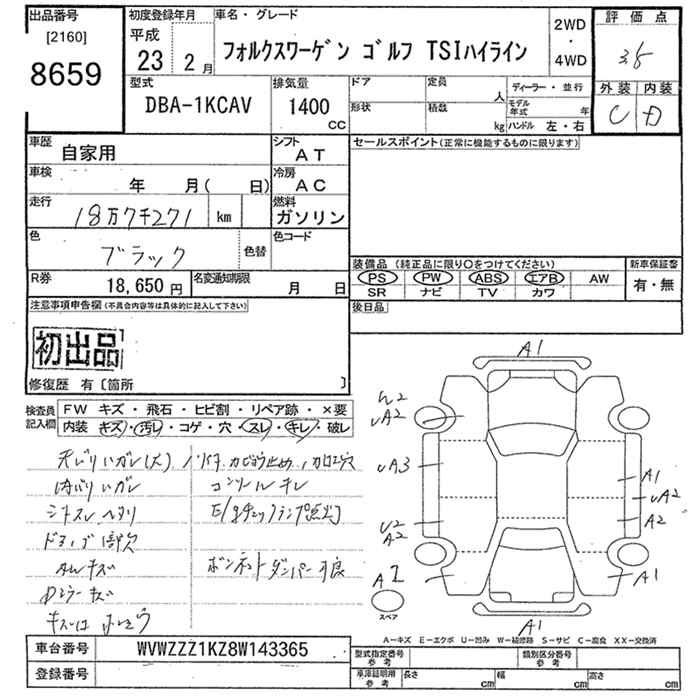 出品番号
[2160]
8659
初度登録年月
平成
23 2月
車名・グレード
フォルクスワーゲン ゴルフ TSIハイライン
2WD
・
4WD
評価点
外装 内装
C D
型式
DBA-1KCAV
排気量
1400
CC
ドア
定員
人
形状
積数
kg
ディーラー・並行
モデル年式
年
ハンドル 左・右
車歴
自家用
シフト
AT
セールスポイント(正常に機能するものに限ります)
車検
年 月( 日)
冷房
AC
走行
18万7千271 km
燃料
ガソリン
色
ブラック
色替
色コード
R券
18,650円
名変通知期限
月 日
装備品 (純正品に限り○をつけてください)
PS PW ABS エアB AW
SR ナビ TV カワ
新車保証書
有・無
注意事項申告欄(不具合内容等は具体的に記入して下さい)
後日品
初出品
修復歴 有〔箇所 〕
検査員
記入欄
FW キズ・飛石・ヒビ割・リペア跡・×要
内装 キズ・汚レ・コゲ・穴・スレ・キレ・破レ
天バリハガレ(大)
内バリハガレ
コンソールキレ
シートスレ ヘタリ
E/gチェックランプ点灯
AWキズ
ボンネットダンパー不良
A1
U2
UA2
UA3
U2
A2
A1
UA2
A2
A1
A1
スペア
A-キズ E-エクボ U-凹み W-補修跡 S-サビ C-腐食 XX-交換済
車台番号
WVWZZZ1KZ8W143365
登録番号
型式指定番号
参考
類別区分番号
参考
車庫証明用
参考
長さ cm
幅 cm
高さ cm